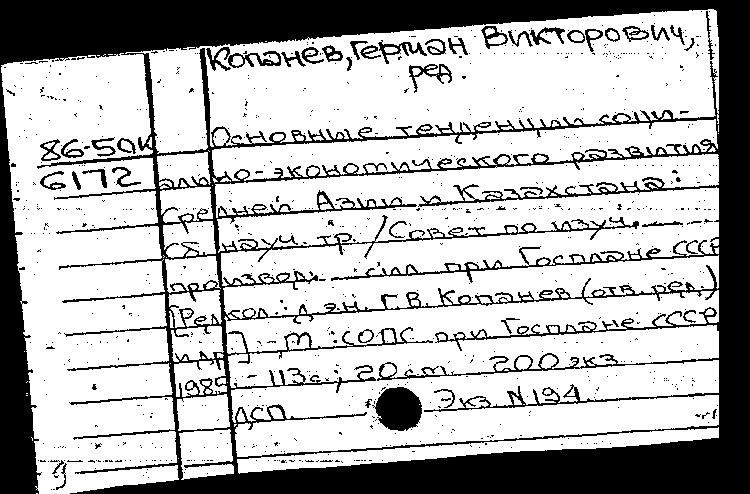 Копанев, Герман Викторович,
ред.
86-50к Основные тенденции соци-
6172 ально-экономического развития
Средней Азии и Казахстана:
Сб. науч. тр. / Совет по изуч.
производ. сил при Госплане СССР
[Редкол.: д.эн. Г.В. Копанев (отв. ред.)
и др.] - М.: СОПС при Госплане СССР,
1985. - 113 с.; 20 см. 200 экз
ДСП. Экз N194